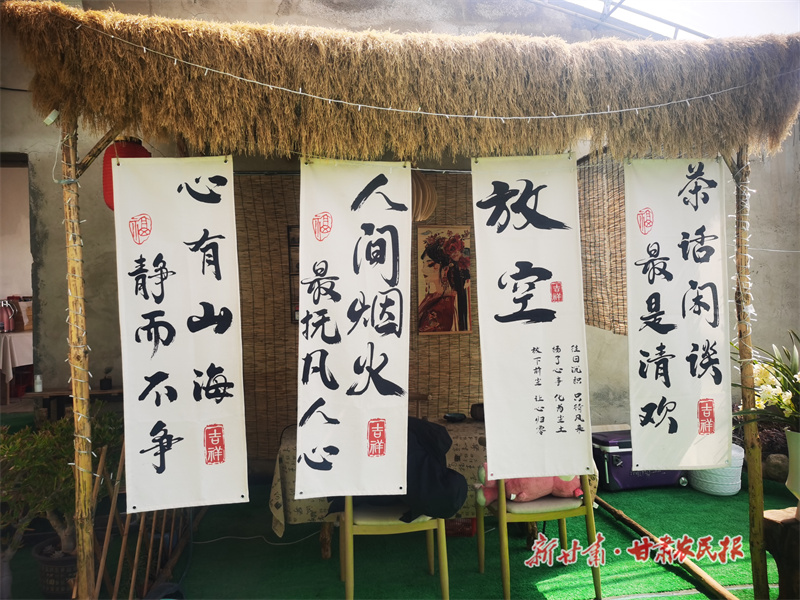 心有山海
静而不争
福
吉祥
人间烟火
最抚凡人心
福
吉祥
放空
吉祥
往日沉积 只待风来
扬了心事 化为尘土
放下前尘 让心归零
茶话闲谈
最是清欢
福
吉祥
新甘肃·甘肃农民报